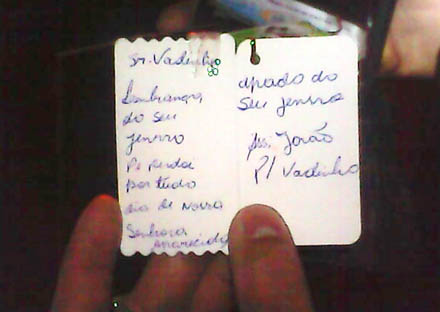 Sr. Vadinho
Lembrança
do seu
jenrro
Pe perdoi
por tudo
dia de Nossa
Senhora
Aparecida
apado do
seu jenrro
João
P/ Vadinho